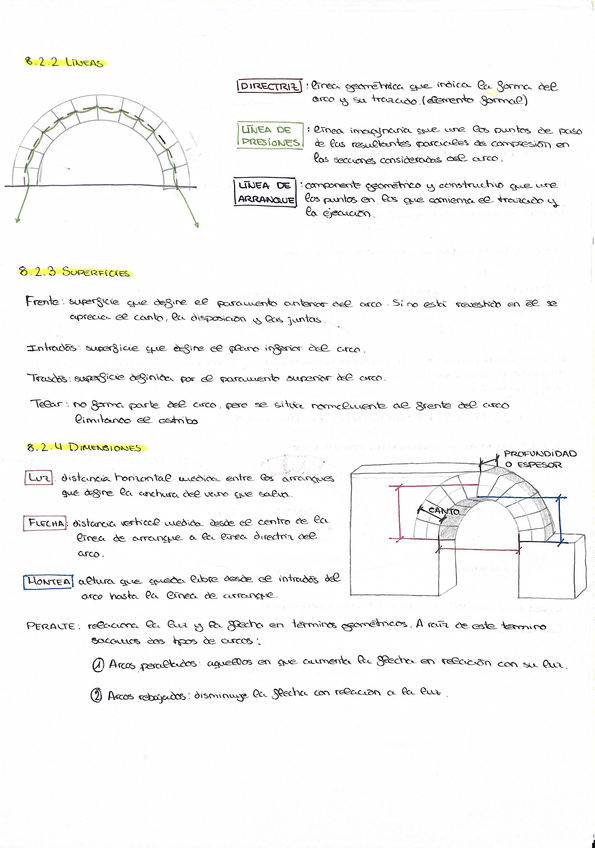 8.2.2 LÍNEAS
DIRECTRIZ: línea geométrica que indica la forma del
arco y su trazado. (elemento formal)
LÍNEA DE PRESIONES: línea imaginaria que une los puntos de paso
de las resultantes parciales de compresión en
las secciones consideradas del arco.
LÍNEA DE ARRANQUE: componente geométrico y constructivo que une
los puntos en los que comienza el trazado y
la ejecución.
8.2.3 SUPERFICIES
Frente: superficie que define el paramento anterior del arco. Si no está revestido en él se
aprecia el canto, la disposición y las juntas.
Intradós: superficie que define el plano inferior del arco.
Trasdós: superficie definida por el paramento superior del arco.
Telar: no forma parte del arco, pero se sitúa normalmente al frente del arco
limitando el estribo
8.2.4 DIMENSIONES
LUZ: distancia horizontal medida entre los arranques
que define la anchura del vano que salva.
FLECHA: distancia vertical medida desde el centro de la
línea de arranque a la línea directriz del
arco.
MONTEA: altura que queda libre desde el intradós del
arco hasta la línea de arranque.
PROFUNDIDAD
O ESPESOR
CANTO
PERALTE: relaciona la luz y la flecha en términos geométricos. A raíz de este término
sacamos dos tipos de arcos:
① Arcos peraltados: aquellos en que aumenta la flecha en relación con su luz.
② Arcos rebajados: disminuye la flecha con relación a la luz.